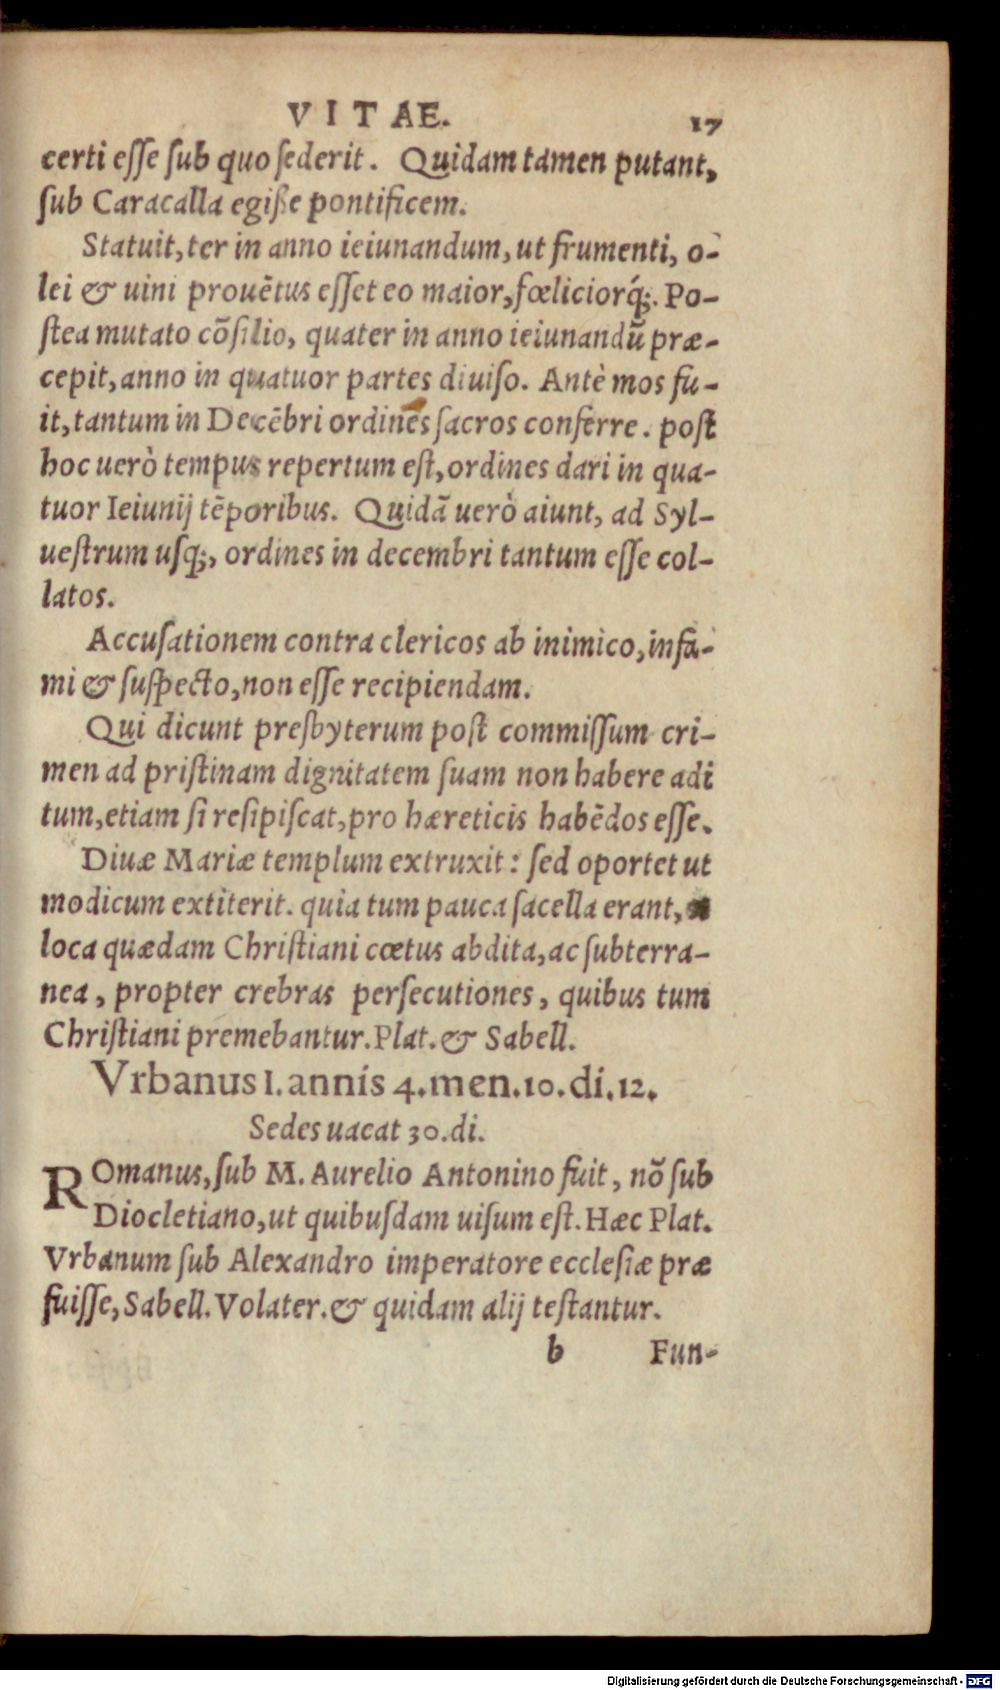 VITAE. 17
certi eſſe ſub quo ſederit. Quidam tamen putant,
ſub Caracalla egiße pontificem.
Statuit, ter in anno ieiunandum, ut frumenti, o-
lei & uini prouētus eſſet eo maior, fœliciorq́;. Po-
ſtea mutato cōſilio, quater in anno ieiunandū præ-
cepit, anno in quatuor partes diuiſo. Antè mos fu-
it, tantum in Decēbri ordines ſacros conferre. poſt
hoc uerò tempus repertum eſt, ordines dari in qua-
tuor Ieiunij tēporibus. Quidā uerò aiunt, ad Syl-
ueſtrum uſq;, ordines in decembri tantum eſſe col-
latos.
Accuſationem contra clericos ab inimico, infa-
mi & ſuſpecto, non eſſe recipiendam.
Qui dicunt preſbyterum poſt commiſſum cri-
men ad priſtinam dignitatem ſuam non habere adi
tum, etiam ſi reſipiſcat, pro hæreticis habēdos eſſe.
Diuæ Mariæ templum extruxit: ſed oportet ut
modicum extiterit. quia tum pauca ſacella erant,
loca quædam Chriſtiani cœtus abdita, ac ſubterra-
nea, propter crebras perſecutiones, quibus tum
Chriſtiani premebantur. Plat. & Sabell.
Vrbanus I. annis 4. men. 10. di. 12.
Sedes uacat 30. di.
ROmanus, ſub M. Aurelio Antonino fuit, nō ſub
Diocletiano, ut quibuſdam uiſum eſt. Hæc Plat.
Vrbanum ſub Alexandro imperatore eccleſiæ præ
fuiſſe, Sabell. Volater. & quidam alij teſtantur.
b Fun-
Digitalisierung gefördert durch die Deutsche Forschungsgemeinschaft - DFG